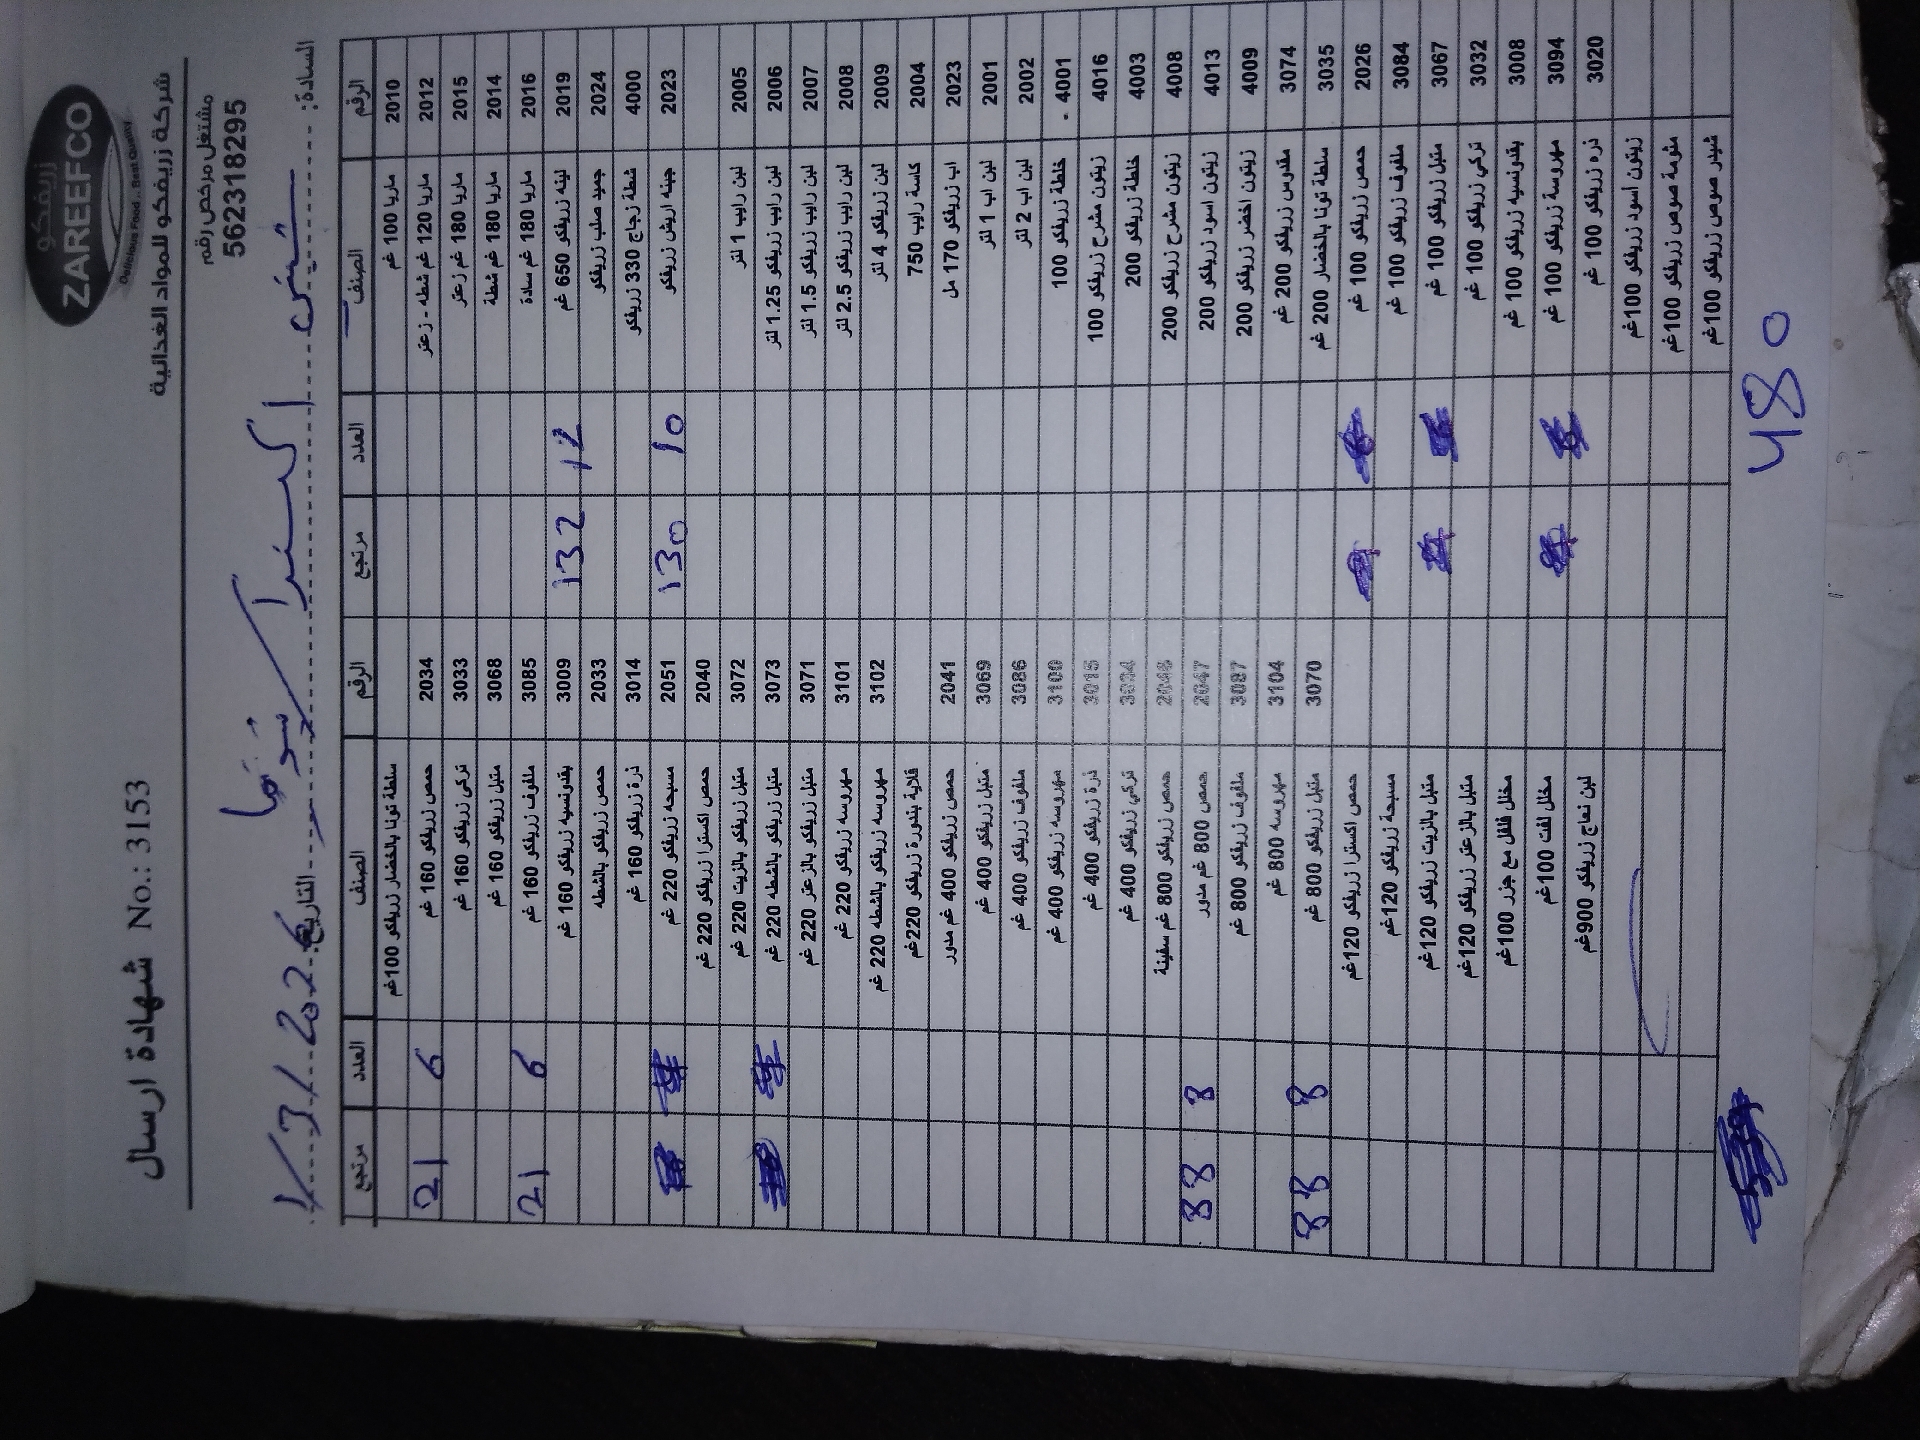 زريفكو
ZAREEFCO
Delicious Food .. Best Quality
شركة زريفكو للمواد الغذائية
مشتغل مرخص رقم
562318295
شهادة ارسال No.: 3153
السادة:
التاريخ:
الرقم الصنف العدد مرتجع الرقم الصنف العدد مرتجع
2010 ماريا 100 غم سلطة تونا بالخضار زريفكو 100غم
2012 ماريا 120 غم شطه - زعتر 2034 حمص زريفكو 160 غم 6 21
2015 ماريا 180 غم زعتر 3033 تركي زريفكو 160 غم
2014 ماريا 180 غم شطة 3068 متبل زريفكو 160 غم
2016 ماريا 180 غم سادة 3085 ملفوف زريفكو 160 غم 6 21
2019 لبنه زريفكو 650 غم 12 132 3009 بقدونسيه زريفكو 160 غم
2024 جميد صلب زريفكو 2033 حمص زريفكو بالشطه
4000 شطة زجاج 330 زريفكو 3014 ذرة زريفكو 160 غم
2023 جبنه اريش زريفكو 10 130 2051 مسبحه زريفكو 220 غم
2040 حمص اكسترا زريفكو 220 غم
2005 لبن رايب 1 لتر 3072 متبل زريفكو بالزيت 220 غم
2006 لبن رايب زريفكو 1.25 لتر 3073 متبل زريفكو بالشطه 220 غم
2007 لبن رايب زريفكو 1.5 لتر 3071 متبل زريفكو بالزعتر 220 غم
2008 لبن رايب زريفكو 2.5 لتر 3101 مهروسه زريفكو 220 غم
2009 لبن زريفكو 4 لتر 3102 مهروسه زريفكو بالشطه 220 غم
2004 كاسة رايب 750 قلاية بندورة زريفكو 220غم
2023 اب زريفكو 170 مل 2041 حمص زريفكو 400 غم مدور
2001 لبن اب 1 لتر 3069 متبل زريفكو 400 غم
2002 لبن اب 2 لتر 3086 ملفوف زريفكو 400 غم
4001 خلطة زريفكو 100 3100 مهروسه زريفكو 400 غم
4016 زيتون مشرح زريفكو 100 3015 ذرة زريفكو 400 غم
4003 خلطة زريفكو 200 3034 تركي زريفكو 400 غم
4008 زيتون مشرح زريفكو 200 2048 حمص زريفكو 800 غم سفينة
4013 زيتون اسود زريفكو 200 2047 حمص 800 غم مدور 8 88
4009 زيتون اخضر زريفكو 200 3087 ملفوف زريفكو 800 غم
3074 مقدوس زريفكو 200 غم 3104 مهروسه 800 غم
3035 سلطة تونا بالخضار 200 غم 3070 متبل زريفكو 800 غم 8 88
2026 حمص زريفكو 100 غم حمص اكسترا زريفكو 120غم
3084 ملفوف زريفكو 100 غم مسبحة زريفكو 120غم
3067 متبل زريفكو 100 غم متبل بالزيت زريفكو 120غم
3032 تركي زريفكو 100 غم متبل بالزعتر زريفكو 120غم
3008 بقدونسيه زريفكو 100 غم مخلل فلفل مع جزر 100غم
3094 مهروسة زريفكو 100 غم مخلل لفت 100غم
3020 ذره زريفكو 100 غم لبن نعاج زريفكو 900غم
زيتون اسود زريفكو 100غم
مثومة صوص زريفكو 100غم
شيدر صوص زريفكو 100غم
480